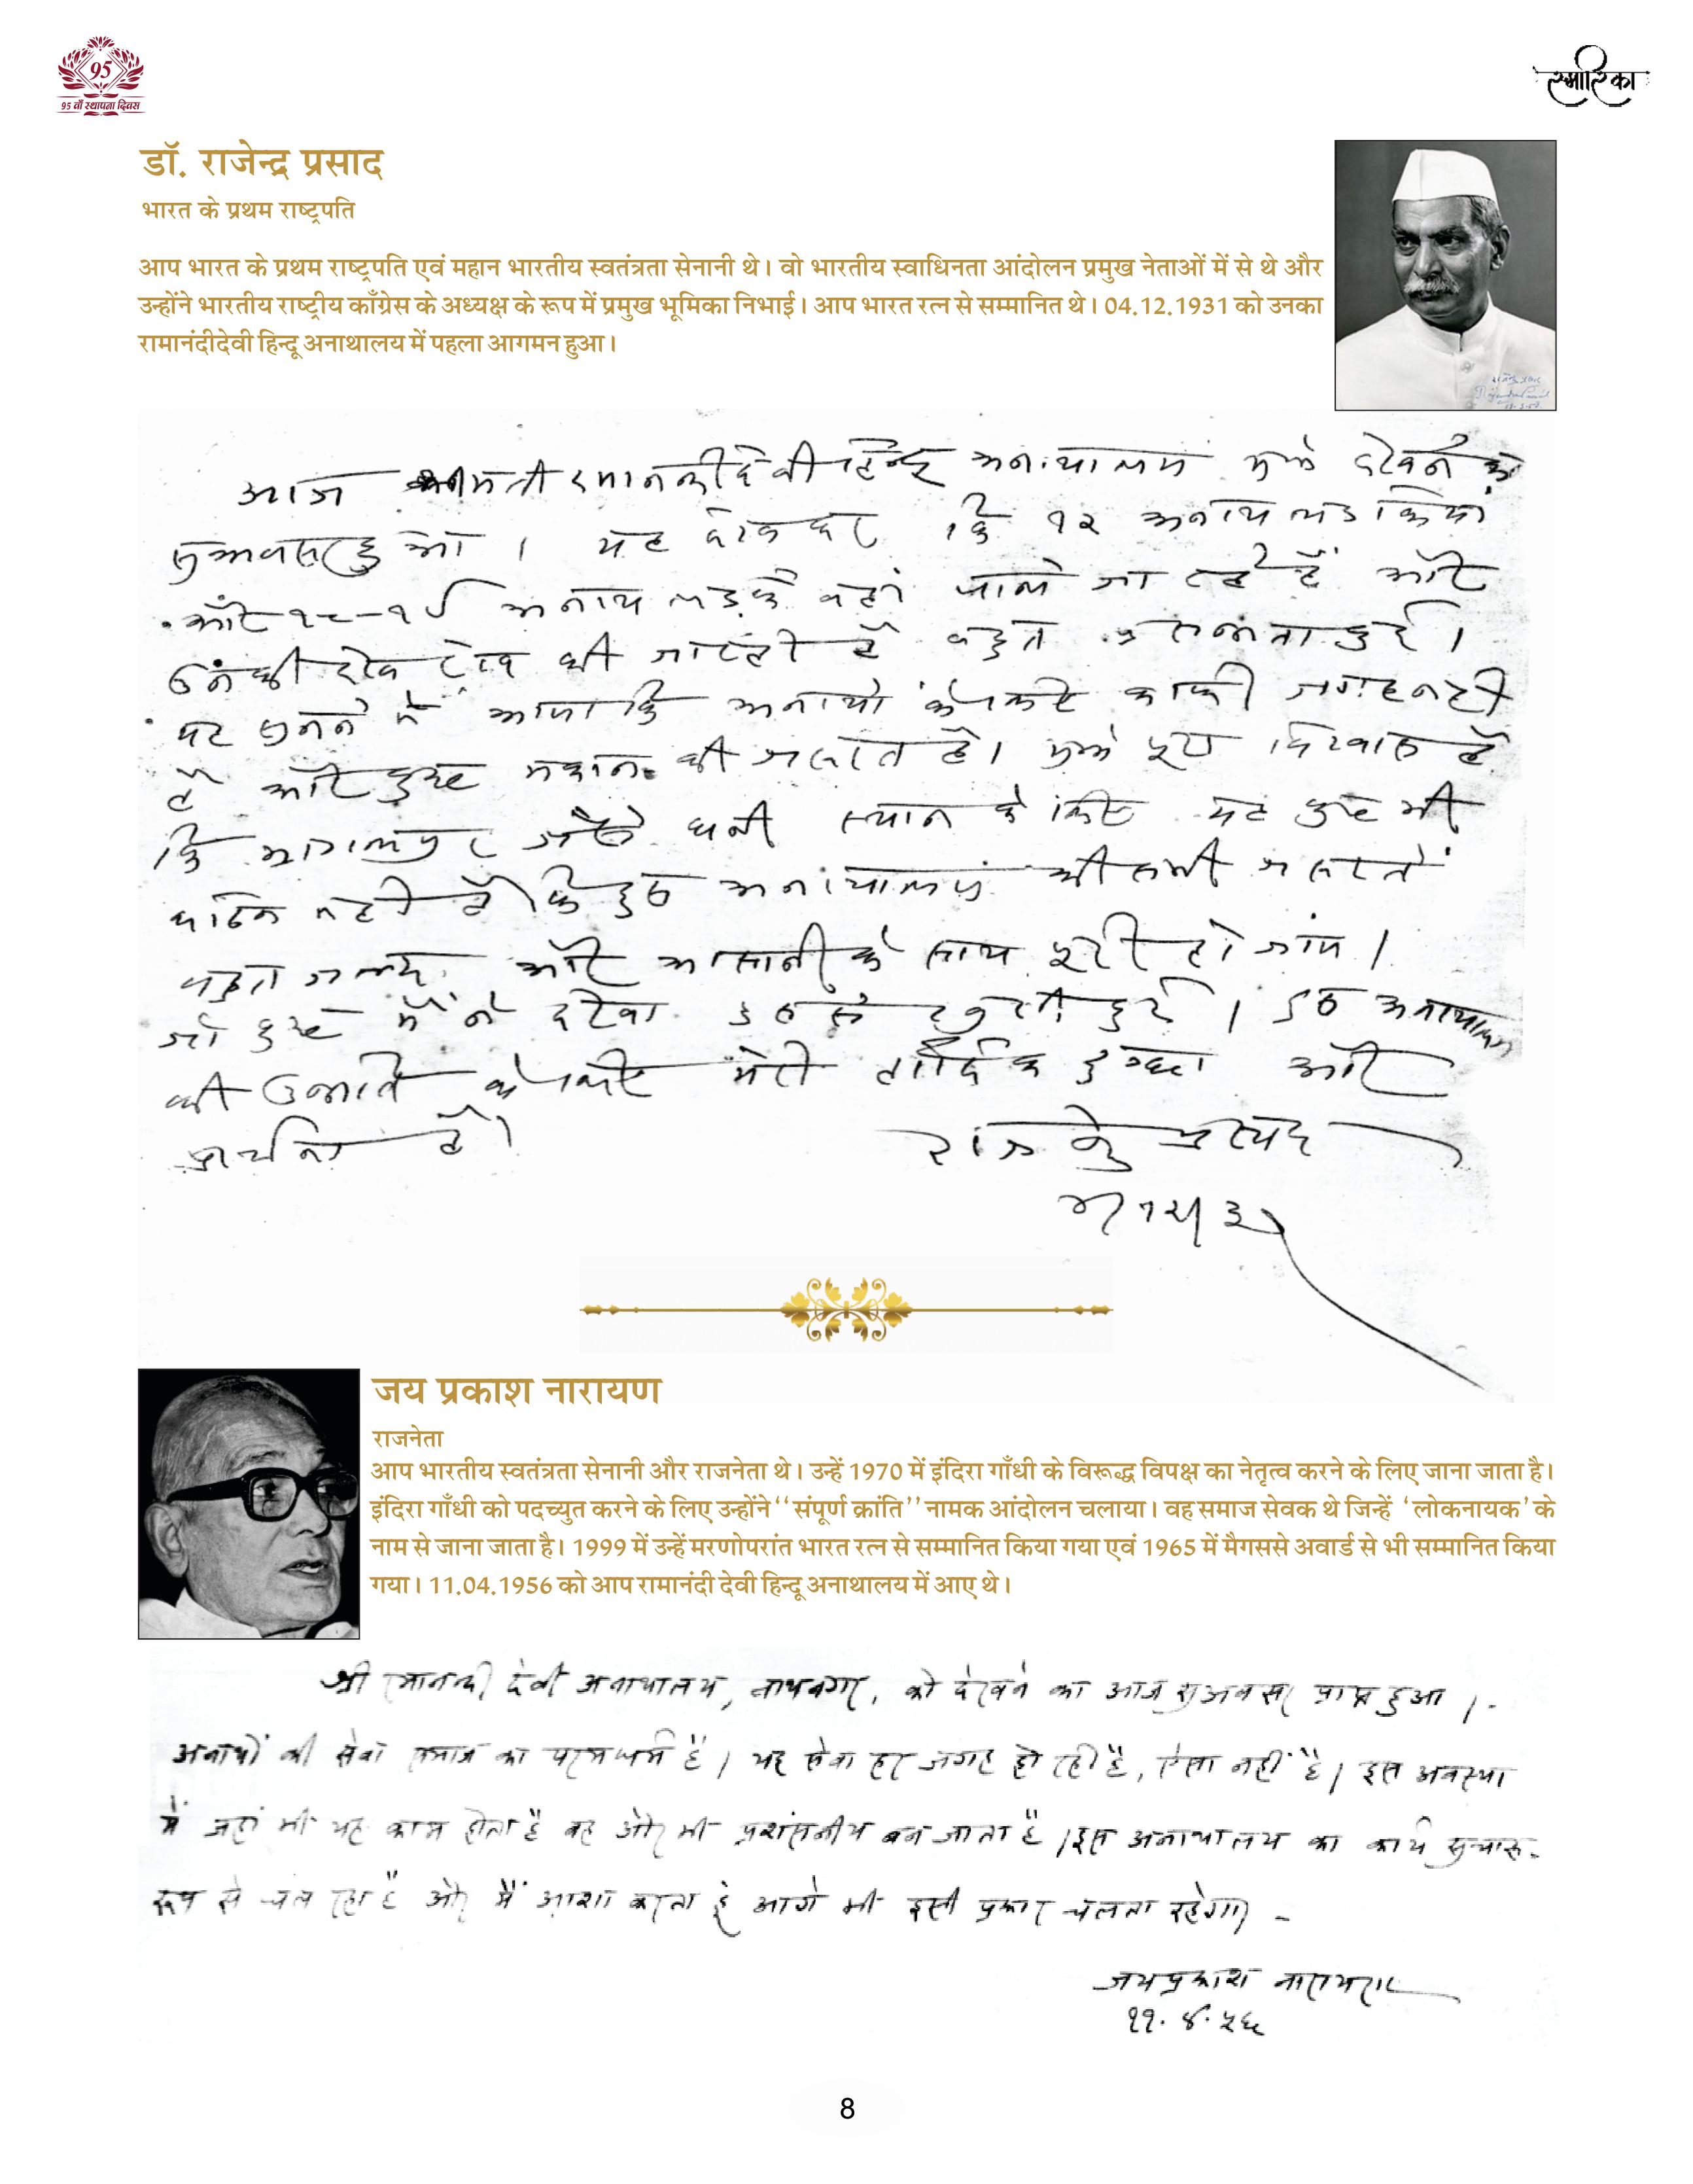 95
95 वाँ स्थापना दिवस
स्मारिका
डॉ. राजेन्द्र प्रसाद
भारत के प्रथम राष्ट्रपति
आप भारत के प्रथम राष्ट्रपति एवं महान भारतीय स्वतंत्रता सेनानी थे। वो भारतीय स्वाधिनता आंदोलन प्रमुख नेताओं में से थे और
उन्होंने भारतीय राष्ट्रीय काँग्रेस के अध्यक्ष के रूप में प्रमुख भूमिका निभाई। आप भारत रत्न से सम्मानित थे। 04.12.1931 को उनका
रामानंदीदेवी हिन्दू अनाथालय में पहला आगमन हुआ।
आज श्रीमती रमानन्दी देवी हिन्दू अनाथालय मुझे देखने का
सुअवसर हुआ । यह देखकर कि १२ अनाथ लडकियां
और अनाथ लड़के यहां पाले जा रहे हैं और
उनकी देख रेख की जा रही है बहुत प्रसन्नता हुई ।
यह सुनने में आया कि अनाथों के लिए काफी जगह नहीं
है और कुछ मकान की जरूरत है। मुझे पूरा विश्वास है
कि भागलपुर जैसे धनी स्थान के लिए यह कुछ भी
कठिन नहीं है कि इस अनाथालय की सभी जरूरतें
बहुत जल्द और आसानी के साथ पूरी हो जांय ।
जो कुछ मैंने देखा उससे खुशी हुई । इस अनाथालय
की उन्नति के लिए मेरी हार्दिक इच्छा और
प्रार्थना है।
राजेन्द्र प्रसाद
जय प्रकाश नारायण
राजनेता
आप भारतीय स्वतंत्रता सेनानी और राजनेता थे। उन्हें 1970 में इंदिरा गाँधी के विरूद्ध विपक्ष का नेतृत्व करने के लिए जाना जाता है।
इंदिरा गाँधी को पदच्युत करने के लिए उन्होंने ‘‘संपूर्ण क्रांति’’ नामक आंदोलन चलाया। वह समाज सेवक थे जिन्हें ‘लोकनायक’ के
नाम से जाना जाता है। 1999 में उन्हें मरणोपरांत भारत रत्न से सम्मानित किया गया एवं 1965 में मैगससे अवार्ड से भी सम्मानित किया
गया। 11.04.1956 को आप रामानंदी देवी हिन्दू अनाथालय में आए थे।
श्री रमानन्दी देवी अनाथालय, नाथनगर, को देखने का आज सुअवसर प्राप्त हुआ ।-
अनाथों की सेवा समाज का परम धर्म है। यह सेवा हर जगह हो रही है, ऐसा नहीं है। इस अवस्था
में जहां भी यह काम होता है वह और भी प्रशंसनीय बन जाता है। इस अनाथालय का कार्य सुचारू-
रूप से चल रहा है और मैं आशा करता हूं आगे भी इसी प्रकार चलता रहेगा। -
जयप्रकाश नारायण
११.४.५६
8